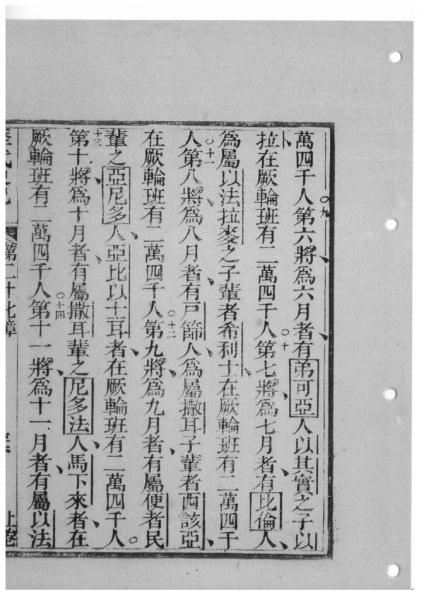 萬四千人○九第六將爲六月者有弟可亞人以其實之子以
拉在厥輪班有二萬四千人○十第七將爲七月者有比倫人
爲屬以法拉麥之子輩者希利士在厥輪班有二萬四千
人○十一第八將爲八月者有戸篩人爲屬撒耳子輩者西該亞
在厥輪班有二萬四千人○十二第九將爲九月者有屬便者民
輩之亞尼多人亞比以士耳者在厥輪班有二萬四千人○
十三第十將爲十月者有屬撒耳輩之尼多法人馬下來者在
厥輪班有二萬四千人○十四第十一將爲十一月者有屬以法